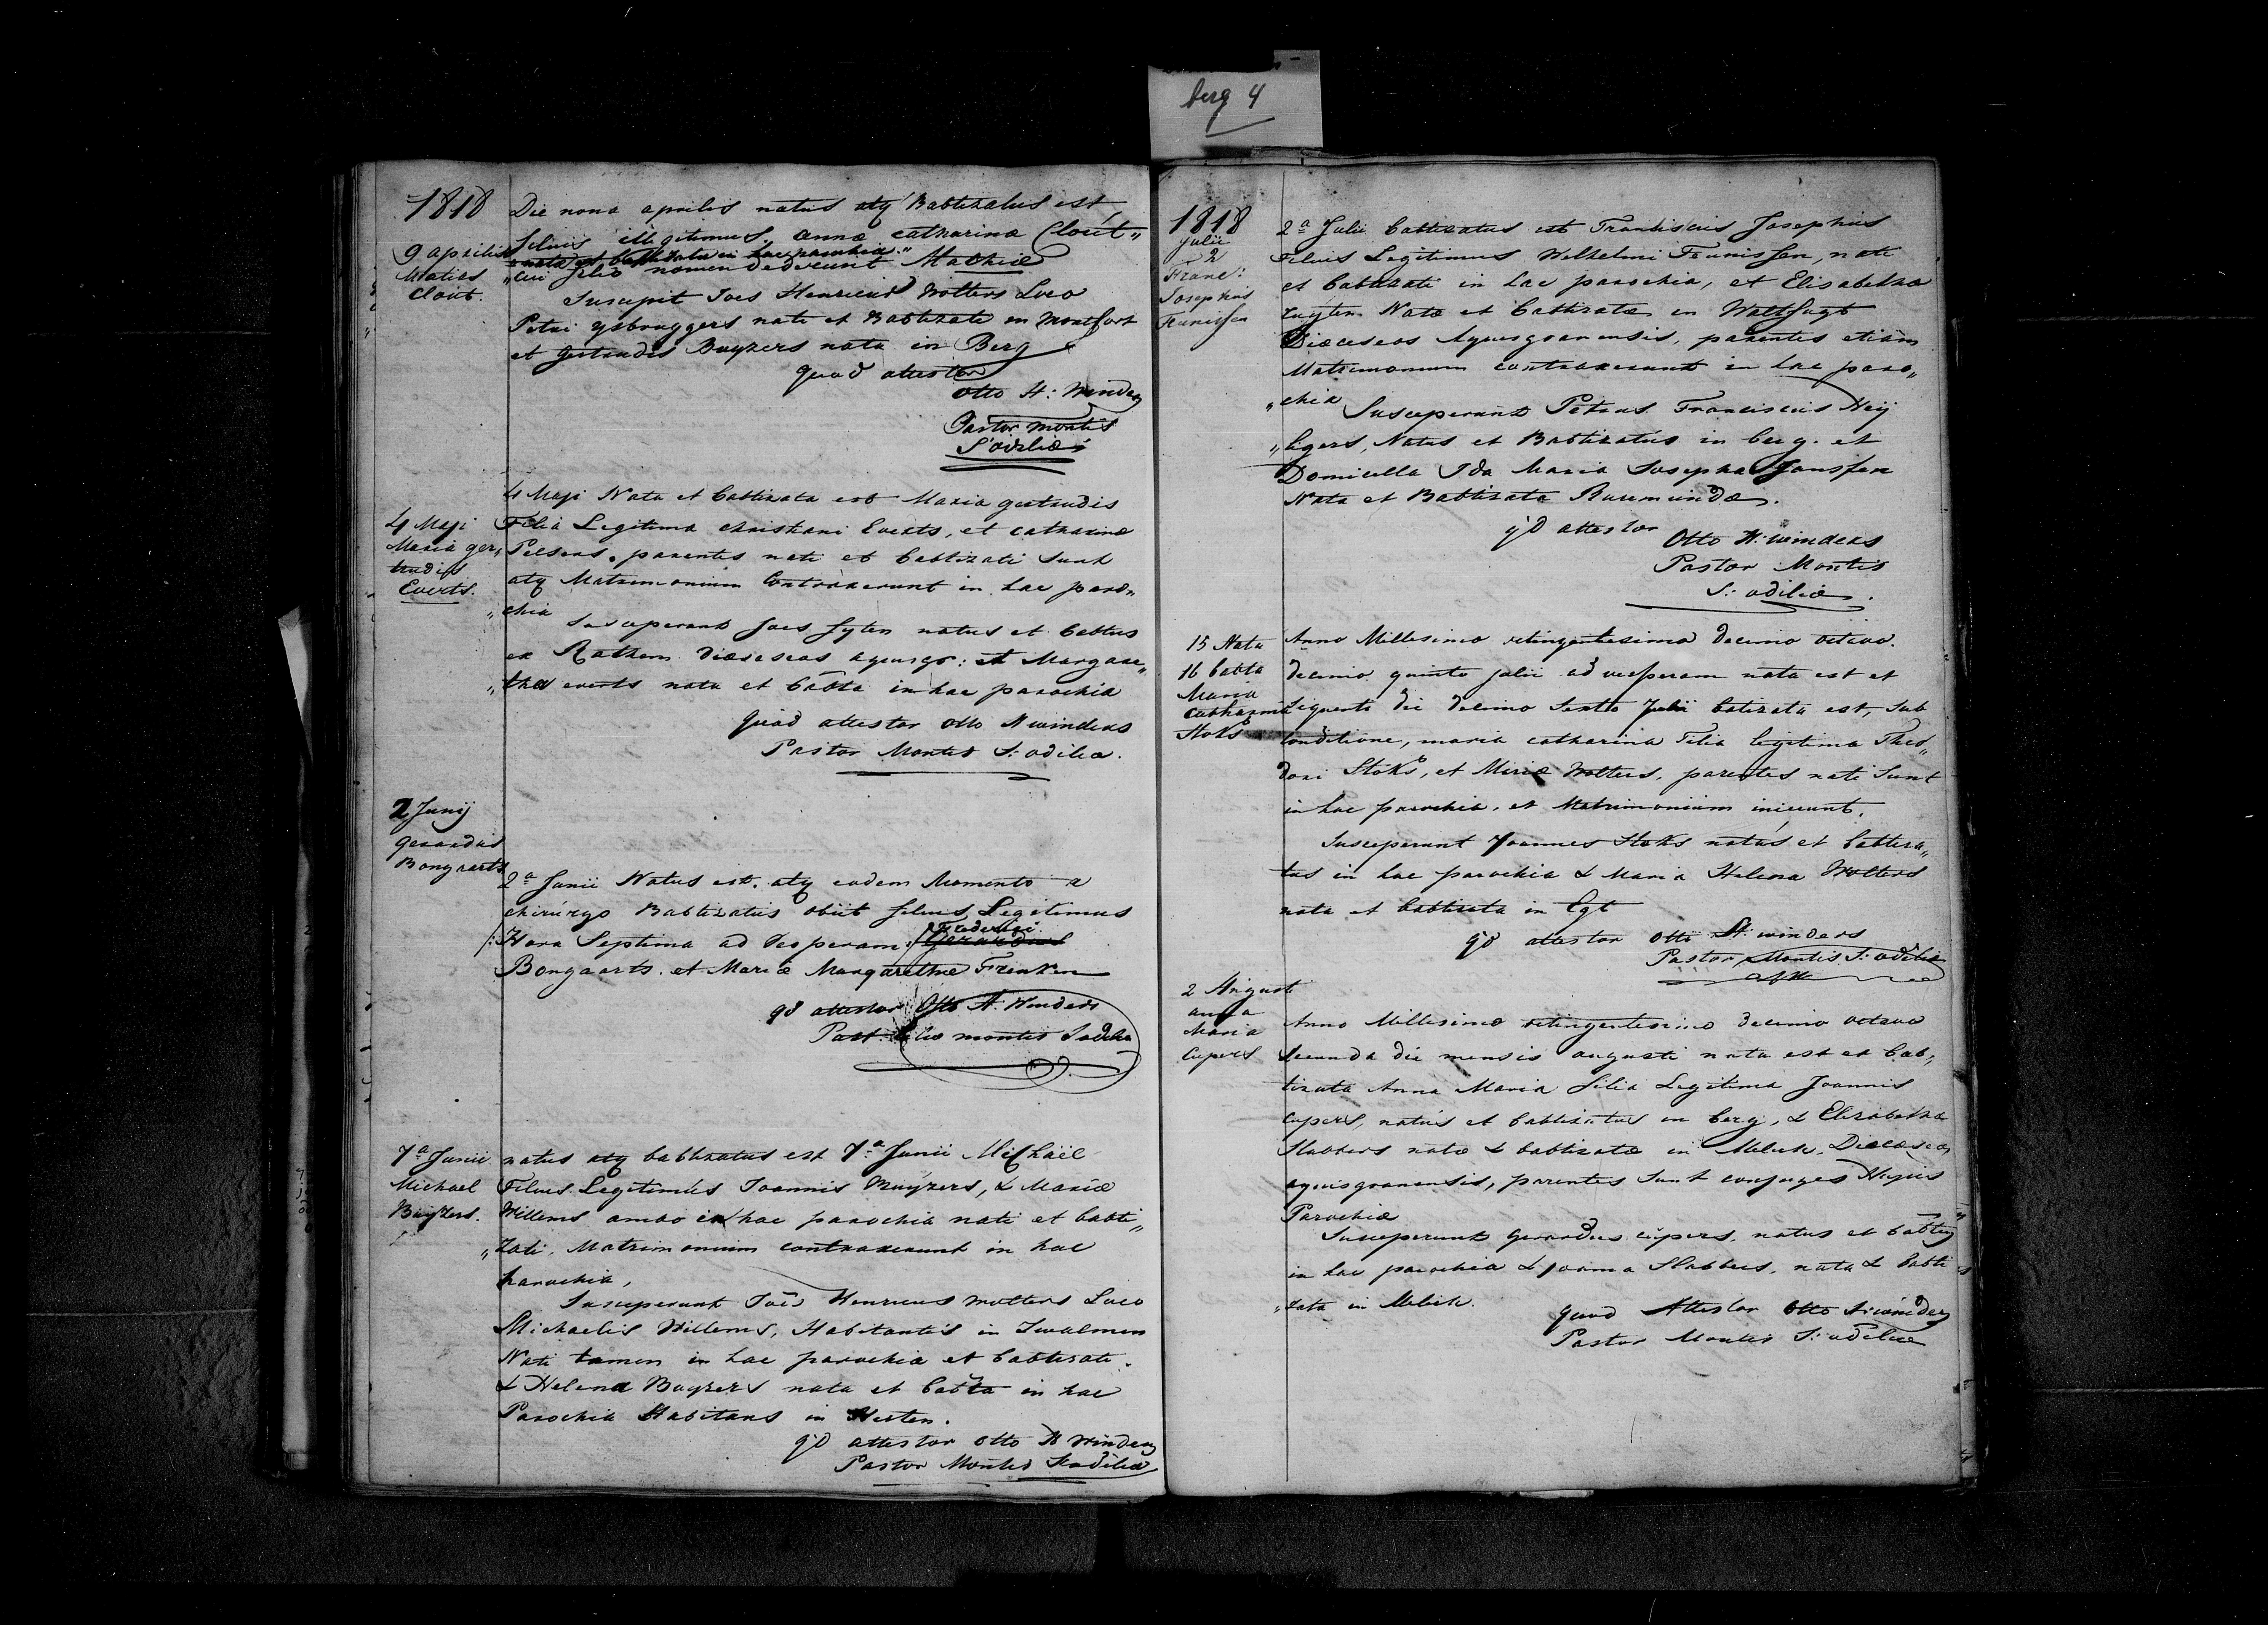 berg 4
1818
9 aprilis
Matias
Clout.
Die nona aprilis natus atq Babtizatus est
filius illegitimus annæ catharinæ Clout„
nata et babtizata in hac parochia"
„cui filio nomen dederunt Mathiæ
Suscepit Joes Henricus Wolters Loco
Petri ysbruggers nati et Babtizati in Montfort
et gertrudis Buyzers nata in Berg
quod attestor
Otto H: Winders
Pastor montis
S'odiliæ
4 Maji
Maria ger„
trudis
Everts.
4 Maji Nata et babtizata est Maria gertrudis
Filia Legitima christiani Everts, et catharinæ
Peesers. parentes nati et babtizati sunt
atq Matrimonium Contraxerunt in hac paro„
„chia
Susceperunt Joes Syten natus et babtus
ex Rothem diœceseos aquisgr: et Margare„
„tha everts nata et babta in hac parochia
Quod attestor Otto H winders
Pastor Montis S: odiliæ.
2 Junij
gerardus
Bongaarts
2ª Junii Natus est. atq eodem Momento a
chirurgo Babtizatus obiit filius Legitimus
/: Hora Septima ad Vesperam :/ Gerardus
Frederici
Bongaarts. et Mariæ Margarethæ Frenken
qd attestor Otto H. Winders
Past. montis S odiliæ
7ª Junii
Michael
Buyzers.
natus atq babtizatus est 7ª Junii Michäel
Filius Legitimus Joannis Buyzers, & Mariæ
Willems ambo in hac parochia nati et babti„
„zati. Matrimonium contraxerunt in hac
parochia,
Susceperunt Joēs Henricus Wolters Loco
Michaelis Willems, Habitantis in Swalmen
Nati tamen in hac parochia et babtizati.
& Helena Buyzers nata et babta in hac
Parochia Habitans in Herten.
qd attestor otto H Winders
Pastor Montis S odiliæ
1818
Julii
2
Franc:
Josephus
Teunissen
2ª Julii babtizatus est Franciscus Josephus
Filius Legitimus Wilhelmi Teunissen, nati
et babtizati in hac parochia, et Elisabetha
Luyten Nata et babtizata in Waltfugt
Diœceseos Aquisgranensis, parentes etiam
Matrimonium contraxerunt in hac paro„
„chia
Susceperunt Petrus Franciscus Heij
„ligers, Natus et Babtizatus in berg. et
Domicella Ida Maria Josepha Janssen
Nata et Babtizata Ruremundæ.
qd attestor
Otto H: winders
Pastor Montis
S: odiliæ.
15 Nata
16 babta
Maria
catharina
Stoks
Anno Millesimo octingentesimo decimo octavo.
decimo quinto julii ad vesperam nata est et
sequenti die decimo sexto Julii batizata est, sub
conditione, maria catharina Filia legitima Theo„
dori Stoks, et Mariæ Wolters. parentes nati sunt
in hac parochia. et Matrimonium inierunt.
Susceperunt Joannes Stoks natus et babtiza„
tus in hac parochia & Maria Helena Wolters
nata et babtizata in Egt
qd attestor otto H: winders
Pastor Montis S: odiliæ
2 Augusti
anna
Maria
Cupers
Anno Millesimo octingentesimo decimo octavo
secunda die mensis augusti nata est et bab„
tizata Anna Maria filia Legitima Joannis
cupers, natus et babtizatus in berg, & Elisabetha
Slabbers nata & babtizata in Melick. Diœceseos
aquisgranensis, parentes sunt conjuges Hujus
Parochiæ
Susceperunt gerardus cupers. natus et babtus
in hac parochia & joanna Slabbers, nata & babti
„zata in Melick.
quod Attestor Otto H: winders
Pastor Montis S: odiliæ